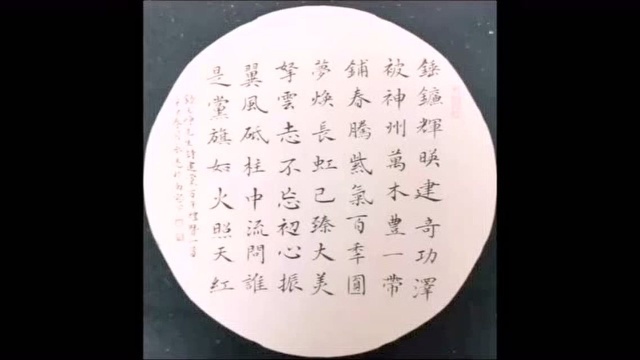 錘鐮輝暎建奇功澤
被神州萬木豐一帶
鋪春騰紫氣百秊圓
夢煥長虹已臻大美
拏雲志不忘初心振
翼風砥柱中流問誰
是黨旗如火照天紅